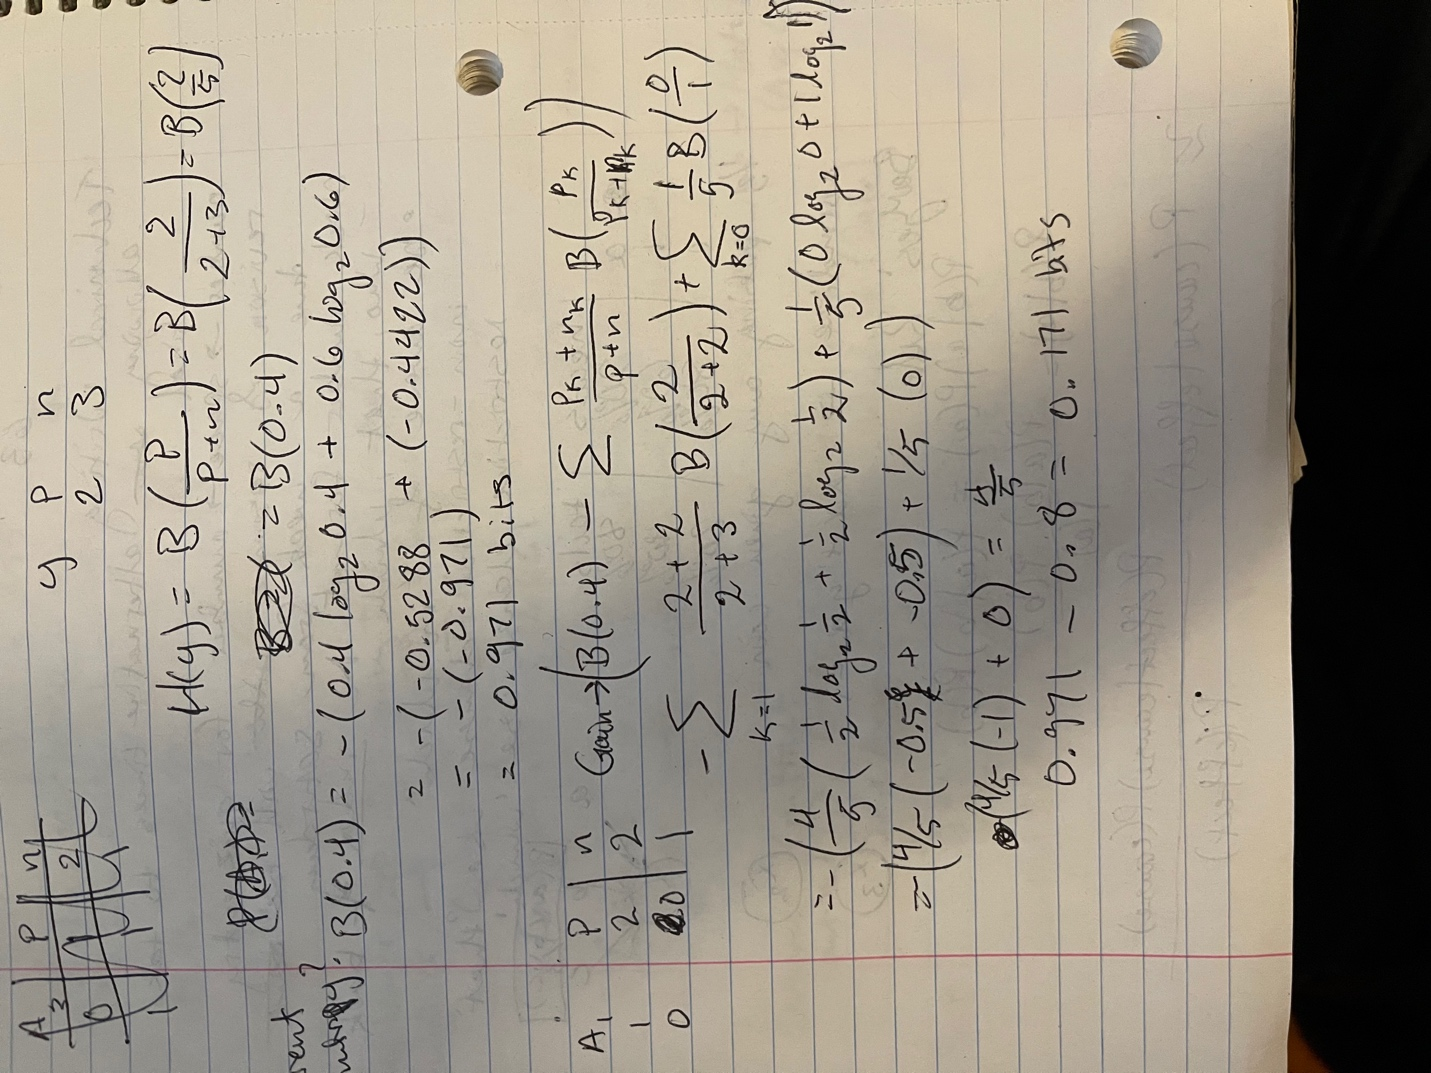 y P n
2 3
A3 P n
0 2
1
H(y) = B(P/(P+n)) = B(2/(2+3)) = B(2/5)
= B(0.4)
B(0.4) = -(0.4 log₂ 0.4 + 0.6 log₂ 0.6)
= -(-0.5288 + (-0.4422))
= -(-0.971)
= 0.971 bits
A1 P n Gain → (B(0.4) - ∑ (Pk + nk)/(p+n) B(Pk/(Pk+nk)))
1 2 2
0 0 1
- ∑k=1 (2+2)/(2+3) B(2/(2+2)) + ∑k=0 1/5 B(0/1)
= -(4/5 (1/2 log₂ 1/2 + 1/2 log₂ 1/2) + 1/5 (0 log₂ 0 + 1 log₂ 1))
= -(4/5 (-0.5 + -0.5) + 1/5 (0))
(4/5 (-1) + 0) = 4/5
0.971 - 0.8 = 0.171 bits